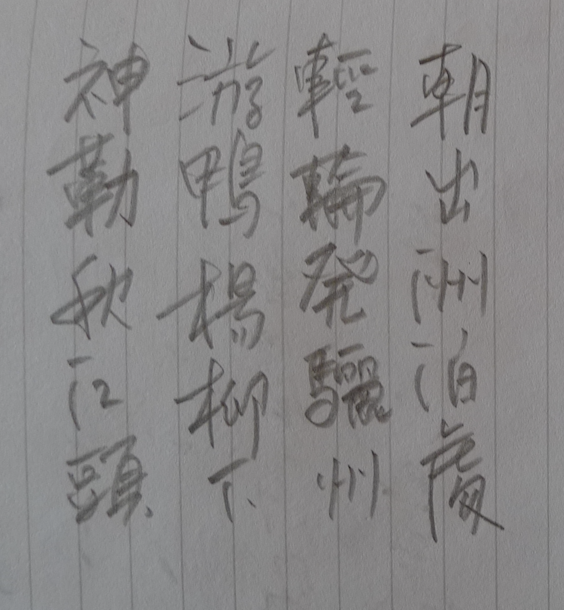 朝出洲泊處
輕輪発驪州
游鴨楊柳下
神勒秋江頭